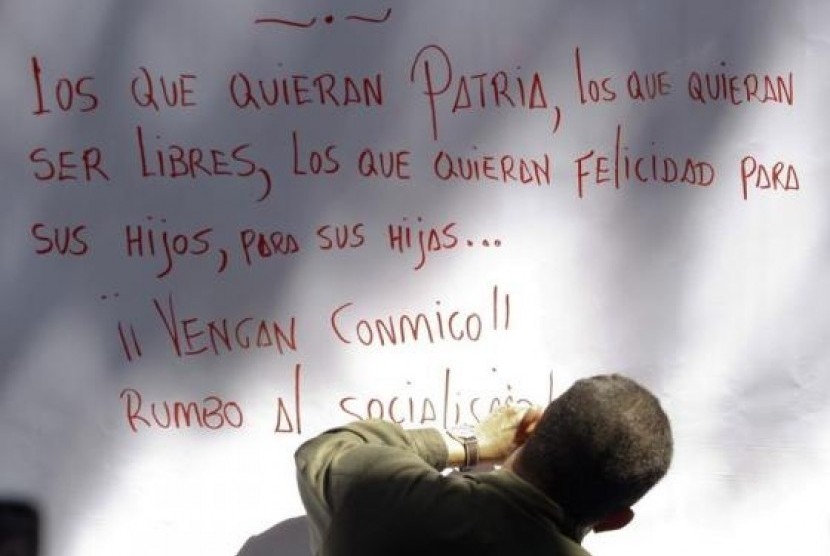 Los que quieran Patria, los que quieran
ser libres, los que quieran felicidad para
sus hijos, para sus hijas...
¡¡Vengan conmigo!!
Rumbo al